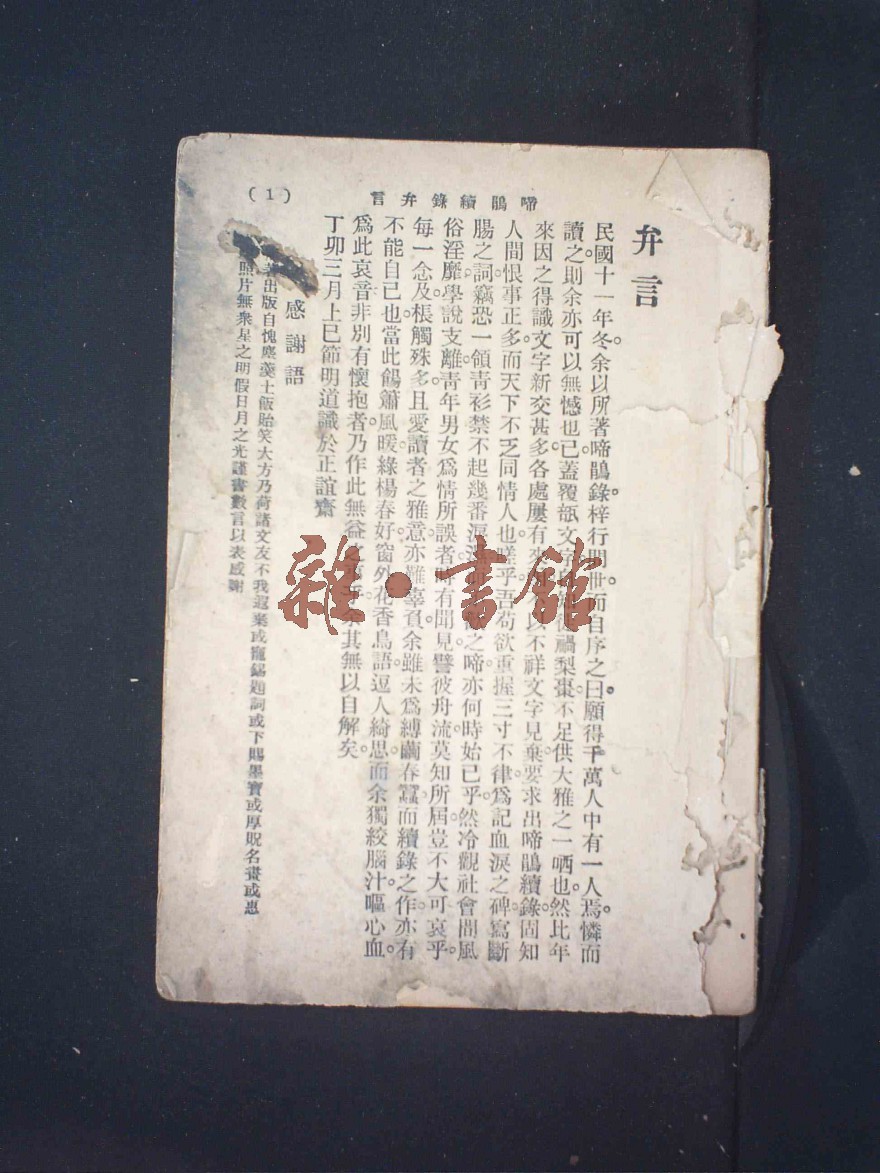 啼鵑續錄弁言
(1)
弁言
民國十一年冬。余以所著啼鵑錄。梓行問世。而自序之曰。願得千萬人中有一人焉。憐而
讀之。則余亦可以無憾也已。蓋覆瓿文字 禍梨棗。不足供大雅之一哂也。然比年
來因之得識文字新交甚多。各處屢有來 以不祥文字見棄。要求出啼鵑續錄。固知
人間恨事正多。而天下不乏同情人也。嗟乎。吾苟欲重握三寸不律。爲記血淚之碑。寫斷
腸之詞。竊恐一領靑衫。禁不起幾番淚 之啼。亦何時始已乎。然冷觀社會間。風
俗淫靡。學說支離。靑年男女爲情所誤者。時有聞見。譬彼舟流。莫知所屆。豈不大可哀乎。
每一念及。棖觸殊多。且愛讀者之雅意。亦難辜負。余雖未爲縛繭春蠶。而續錄之作。亦有
不能自已也。當此餳簫風暖。綠楊春好。窗外花香鳥語。逗人綺思。而余獨絞腦汁。嘔心血。
爲此哀音。非別有懷抱者。乃作此無益之 其無以自解矣。
丁卯三月上巳節明道識於正誼齋
感謝語
著出版自愧塵羹土飯貽笑大方乃荷諸文友不我遐棄或寵錫題詞或下賜墨寶或厚貺名畫或惠
照片無衆星之明假日月之光謹書數言以表感謝
雜·書館